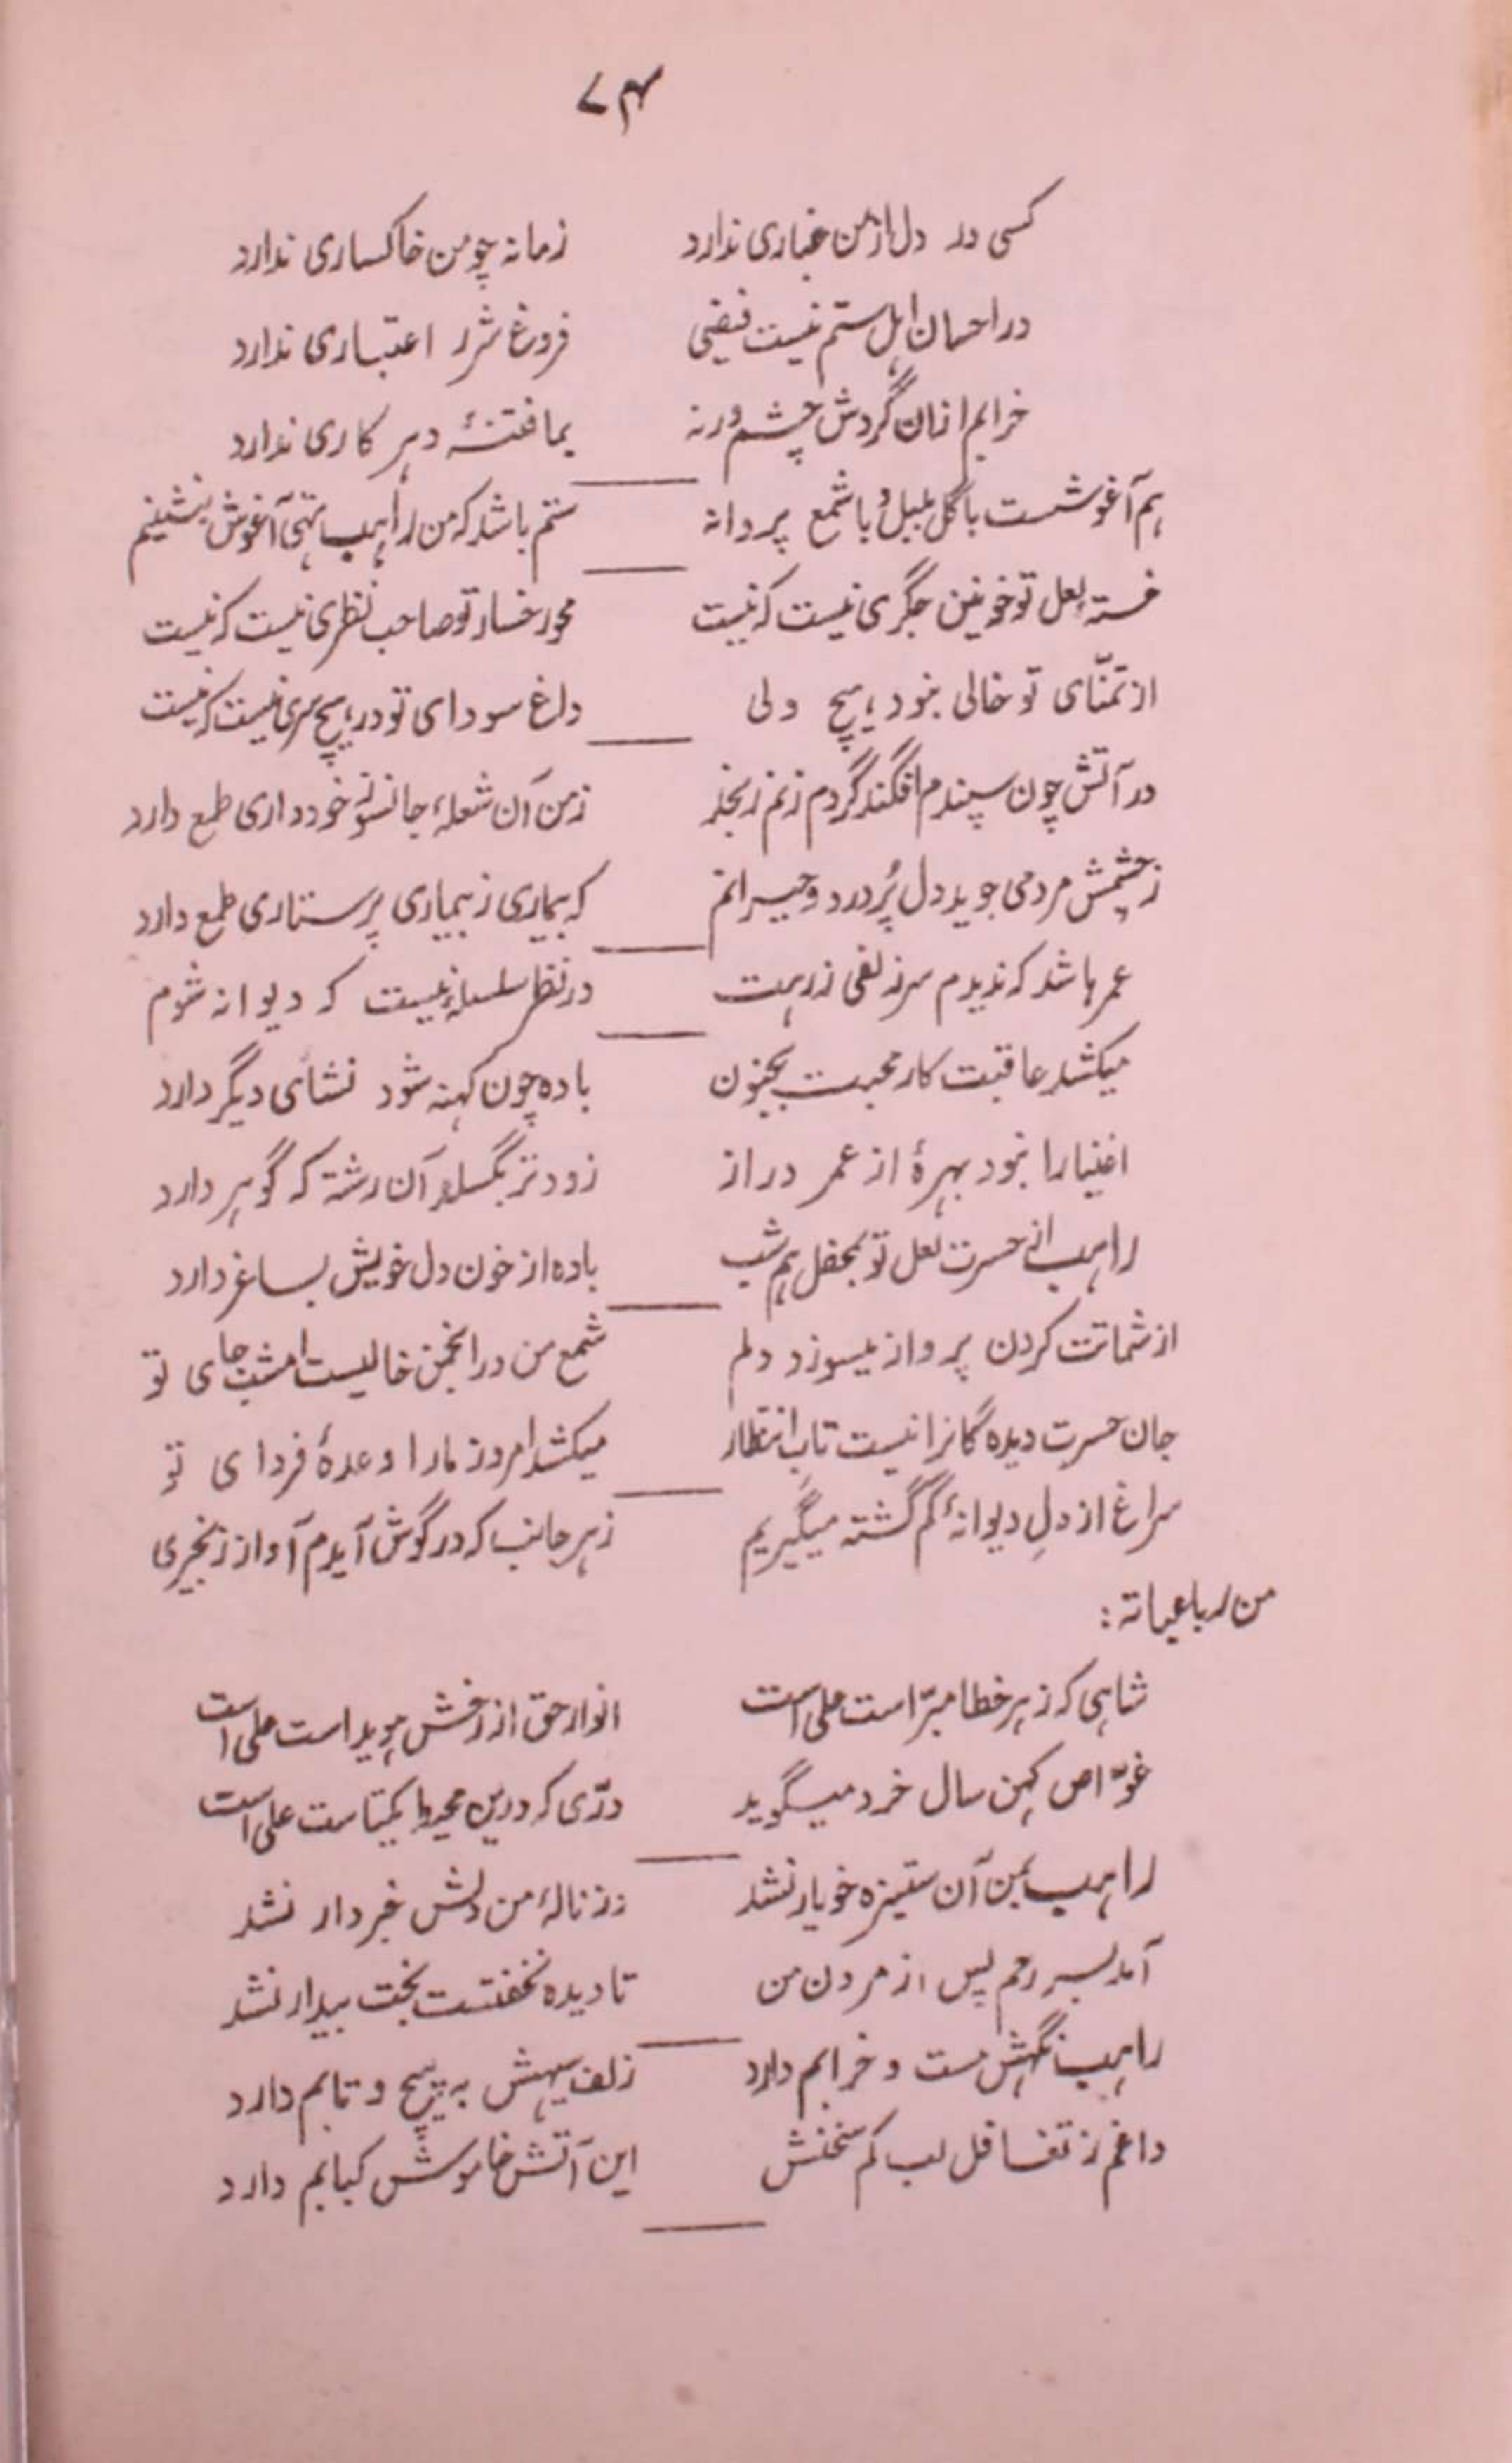 ۷۴
کسی در دل از من غباری ندارد زمانه چو من خاکساری ندارد
در احسان اہل ستم نیست فیضی فروغ شرر اعتباری ندارد
خرابم ازان گردش چشم ورنہ بما فتنۂ دہر کاری ندارد
ہم آغوشست با گل بلبل و با شمع پروانہ ستم باشد کہ من راہب تہی آغوش بنشینم
خستہ لعل تو خونین جگری نیست کہ نیست محو رخسار تو صاحب نظری نیست کہ نیست
از تمنّای تو خالی نبود ہیچ دلی داغ سودای تو در ہیچ سری نیست کہ نیست
در آتش چون سپندم افگند گر دم زنم رنجد ز من آن شعلۂ جانسوز خودداری طمع دارد
ز چشمش مردمی جوید دل پُر درد و حیرانم کہ بیماری ز بیماری پرستاری طمع دارد
عمرہا شد کہ ندیدم سر زلفی ز رہت در نظر سلسلۂ نیست کہ دیوانہ شوم
میکشد عاقبت کار محبت بجنون بادہ چون کہنہ شود نشائی دیگر دارد
اغنیا را نبود بہرۂ از عمر دراز زودتر بگسلد آن رشتہ کہ گوہر دارد
راہب از حسرت لعل تو بمحفل ہم شب بادہ از خون دل خویش بساغر دارد
از شماتت کردن پرواز میسوزد دلم شمع من در انجمن خالیست امشب جای تو
جان حسرت دیدہ گانرا نیست تابِ انتظار میکشد امروز مارا وعدۂ فردا ی تو
سراغ از دلِ دیوانۂ گم گشتہ میگیریم ز ہر جانب کہ در گوش آیدم آواز زنجیری
من رباعیاتہ :
شاہی کہ ز ہر خطا مبرّا است علی است انوار حق از رخش ہویداست علی است
غوّاص کہن سال خرد میگوید درّی کہ درین محیط یکتاست علی است
راہب بمن آن ستیزہ خو یار نشد وز نالۂ من دلش خبردار نشد
آمد بسر رحم پس از مردن من تا دیدہ نخفتست بخت بیدار نشد
راہب نگہش مست و خرابم دارد زلف سیہش بہ پیچ و تابم دارد
داغم ز تغافل لب کم سخنش این آتش خاموش کبابم دارد